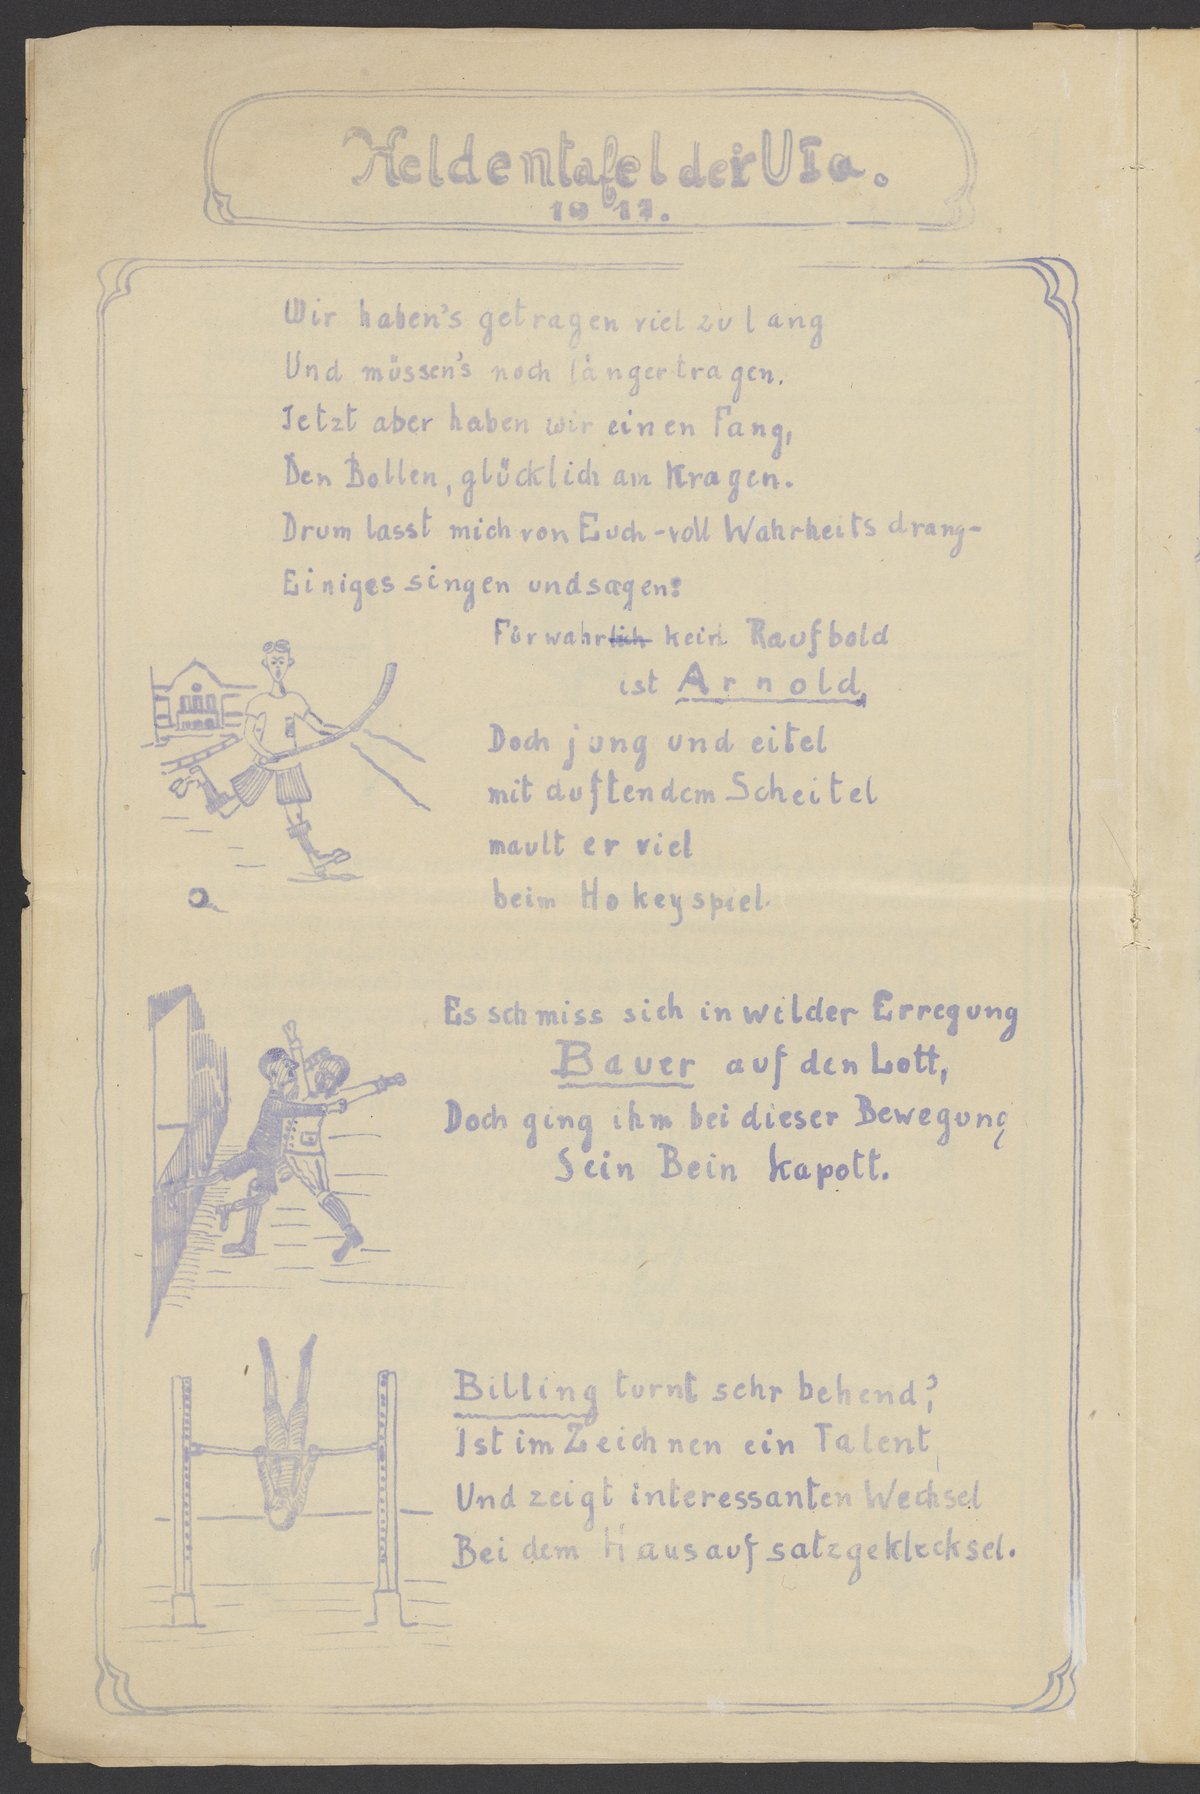 Heldentafel der UIa.
1917.
Wir haben's getragen viel zu lang
Und müssen's noch länger tragen.
Jetzt aber haben wir einen Fang,
Den Bollen, glücklich am Kragen.
Drum lasst mich von Euch - voll Wahrheitsdrang -
Einiges singen und sagen:
Fürwahrlich kein Raufbold
ist Arnold,
Doch jung und eitel
mit duftendem Scheitel
mault er viel
beim Hokeyspiel.
Es schmiss sich in wilder Erregung
Bauer auf den Lott,
Doch ging ihm bei dieser Bewegung
Sein Bein kapott.
Billing turnt sehr behend,
Ist im Zeichnen ein Talent
Und zeigt interessanten Wechsel
Bei dem Hausaufsatzgeklecksel.